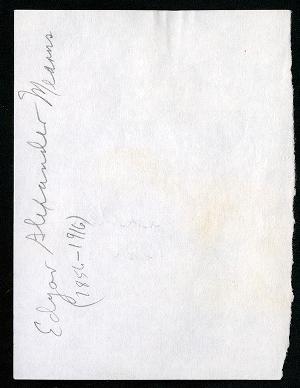 Edgar Alexander Mearns
(1856-1916)